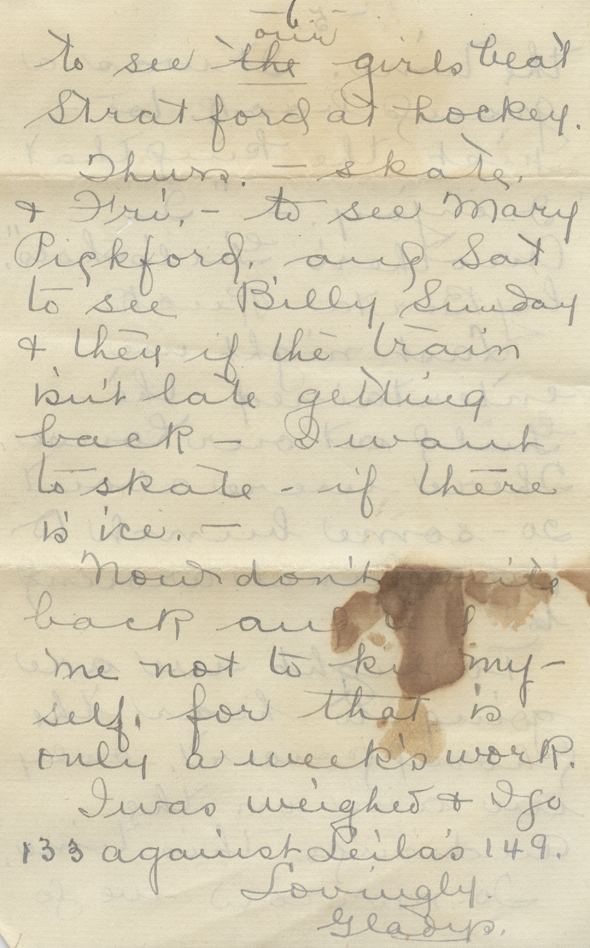 -6-
our
to see the girls beat
Stratford at hockey.
Thurs. — skate.
& Fri. - to see Mary
Pickford. and Sat
to see Billy Sunday
& then if the train
isn't late getting
back — I want
to skate - if there
is ice. —
Now don't
back and
me not to kill my-
self, for that is
only a week's work.
I was weighed & I go
133 against Leila's 149.
Lovingly.
Gladys.